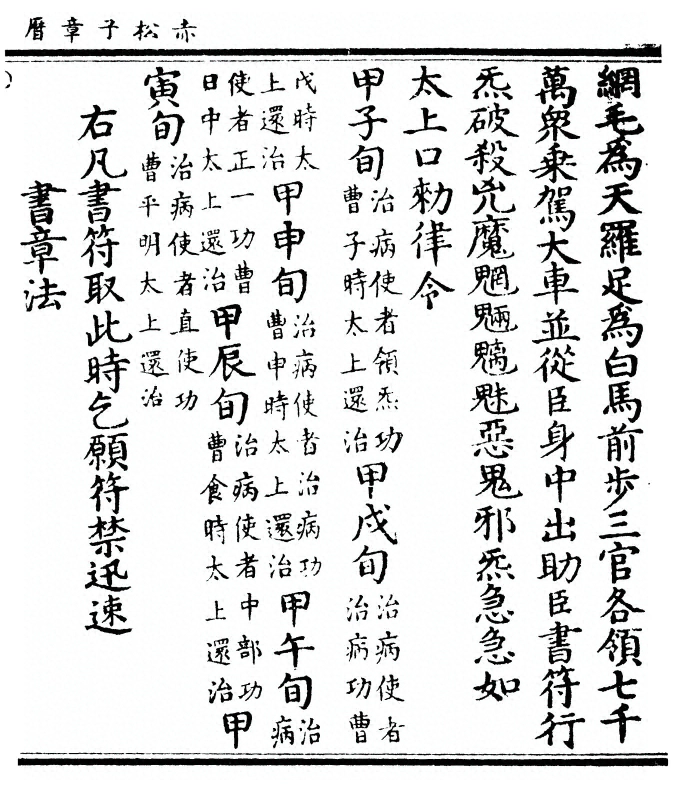 赤松子章曆
網毛爲天羅足爲白馬前步三官各領七千
萬衆乗駕大車並從臣身中出助臣書符行
炁破殺兇魔魍魎魑魅惡鬼邪炁急急如
太上口勑律令
甲子旬治病使者領炁功曹子時太上還治甲戌旬治病使者治病功曹
戌時太上還治甲申旬治病使者治病功曹申時太上還治甲午旬治病
使者正一功曹日中太上還治甲辰旬治病使者中部功曹食時太上還治甲
寅旬治病使者直使功曹平明太上還治
右凡書符取此時乞願符禁迅速
書章法